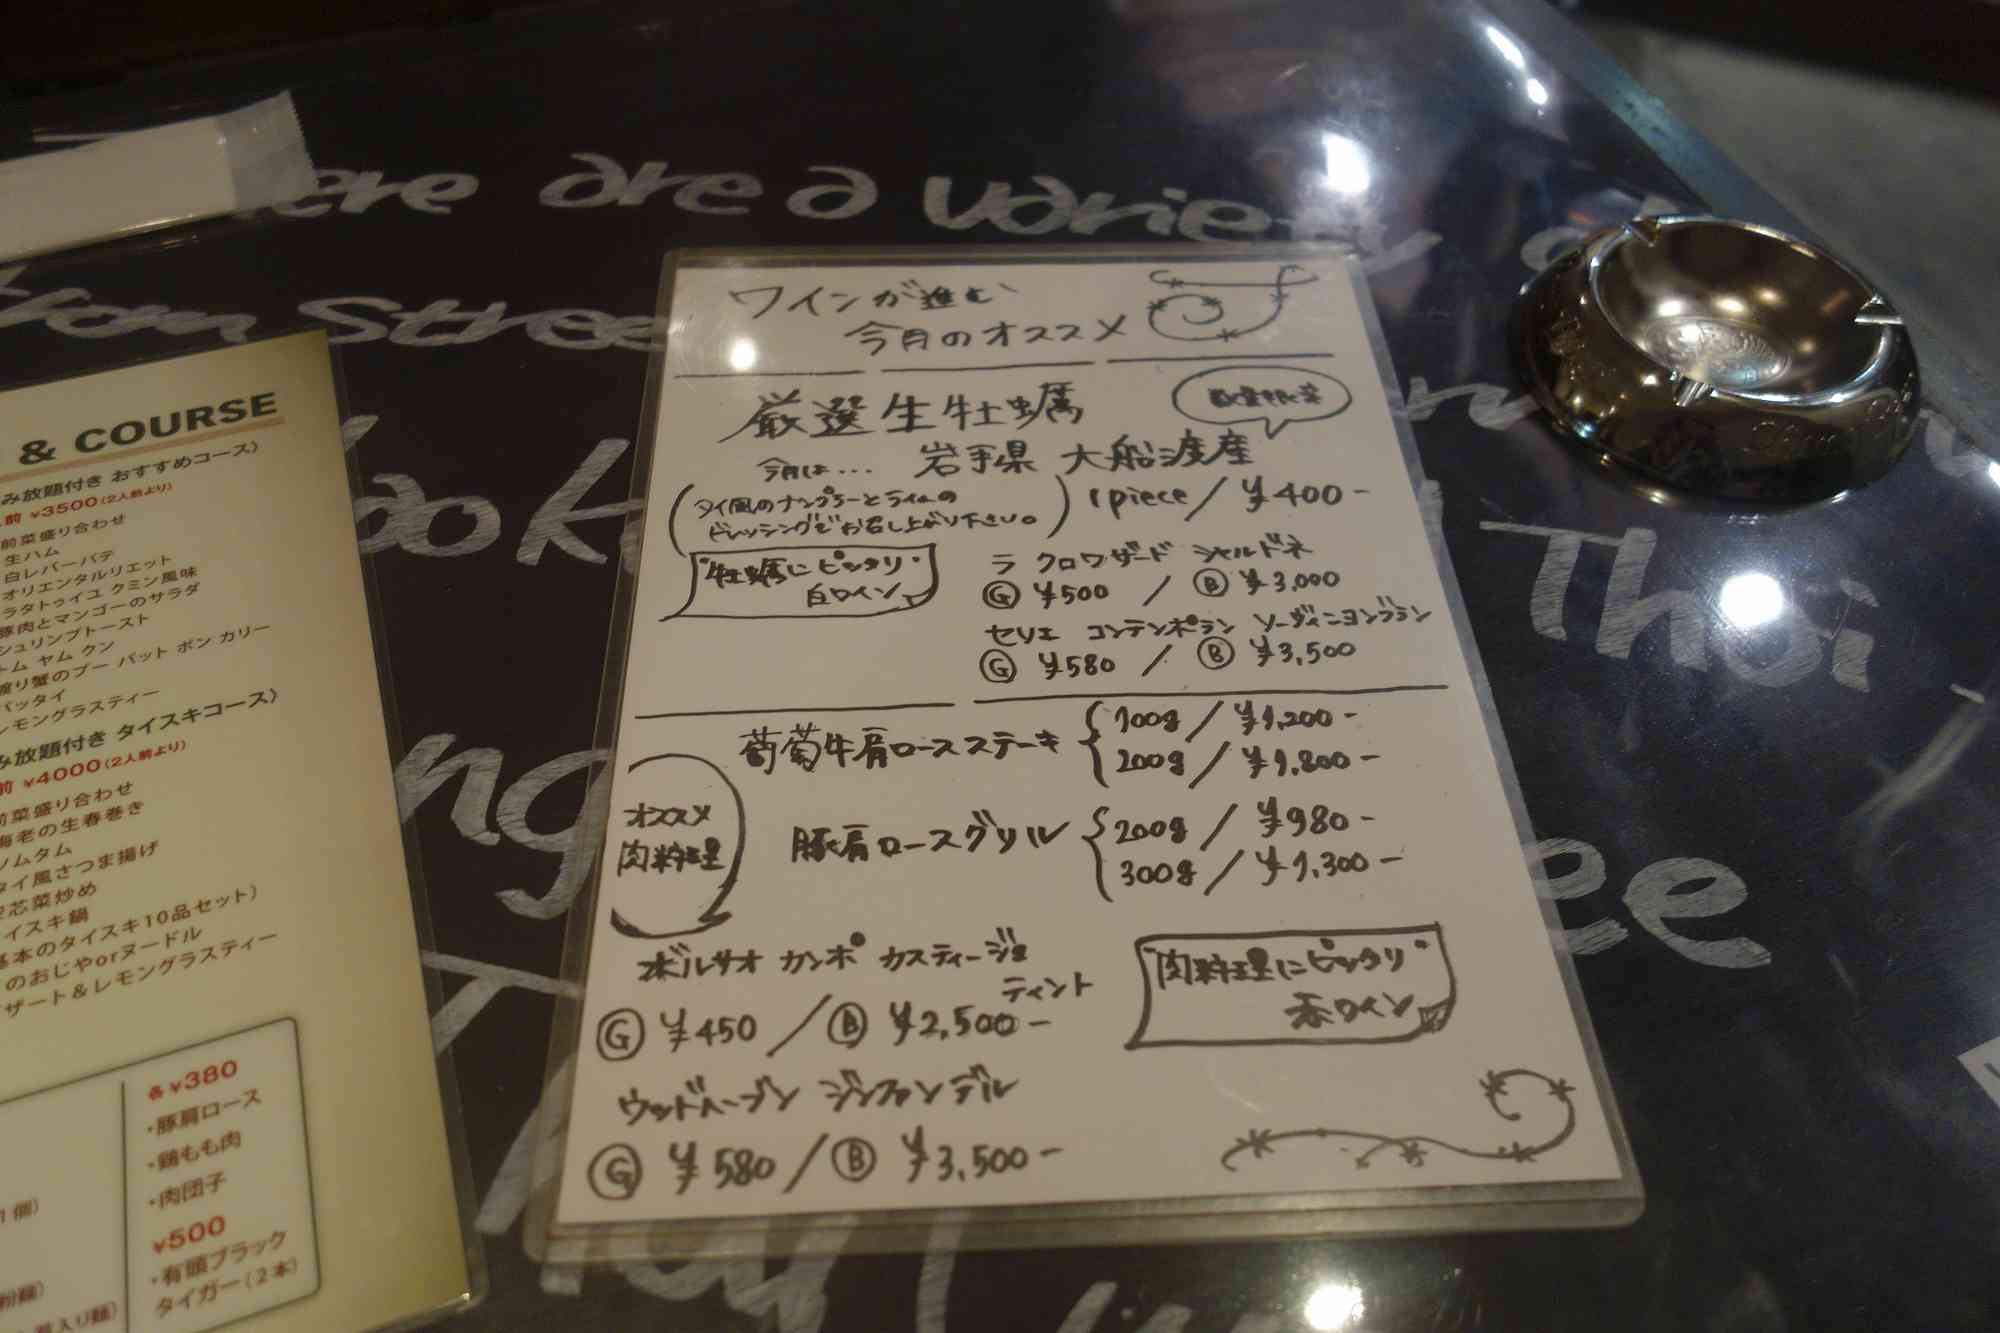 ere are a variety
from Stree
ワインが進む
今月のオススメ
厳選生牡蠣
数量限定
今月は... 岩手県 大船渡産
(タイ風のナンプラーとライムの
ドレッシングでお召し上がり下さい。)
1piece / ¥400-
"牡蠣にピッタリ"
白ワイン
ラ クロワザード シャルドネ
Ⓖ ¥500 / Ⓑ ¥3,000
セリエ コンテンポラン ソーヴィニヨンブラン
Ⓖ ¥580 / Ⓑ ¥3,500
葡萄牛肩ロースステーキ
100g / ¥1,200-
200g / ¥1,800-
オススメ
肉料理
豚肩ロースグリル
200g / ¥980-
300g / ¥1,300-
ボルサオ カンポ カスティージョ
ティント
Ⓖ ¥450 / Ⓑ ¥2,500-
"肉料理にピッタリ"
赤ワイン
ウッドヘーブン ジンファンデル
Ⓖ ¥580 / Ⓑ ¥3,500-
& COURSE
み放題付き おすすめコース)
前 ¥3500(2人前より)
前菜盛り合わせ
生ハム
白レバーパテ
オリエンタルリエット
ラタトゥイユ クミン風味
豚肉とマンゴーのサラダ
シュリンプトースト
トム ヤム クン
渡り蟹のプー パット ポン カリー
パッタイ
レモングラスティー
み放題付き タイスキコース)
前 ¥4000(2人前より)
前菜盛り合わせ
海老の生春巻き
ソムタム
タイ風さつま揚げ
空芯菜炒め
イスキ鍋
基本のタイスキ10品セット)
のおじやorヌードル
ザート&レモングラスティー
各¥380
・豚肩ロース
・鶏もも肉
・肉団子
¥500
・有頭ブラック
タイガー(2本)
1個)
粉麺)
入り麺)
Thai